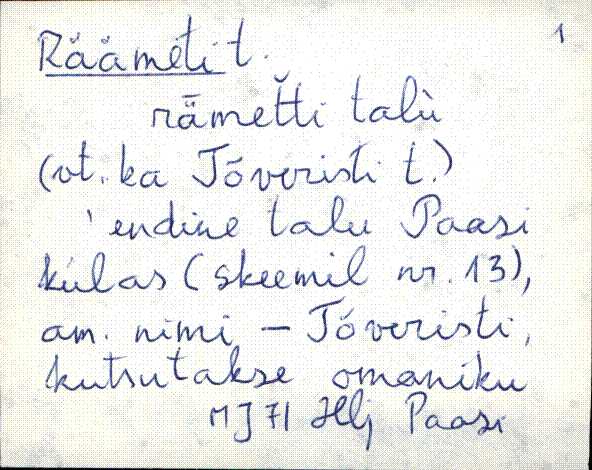 1
Räämeti t.
rämet̆ti talù
(vt. ka Tóveristi t.)
'endine talu Paasi
külas (skeemil nr. 13),
am. nimi – Tóveristi,
kutsutakse omaniku
MJ 71 Hlj Paasi